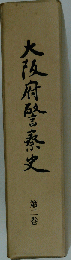 大阪府警察史
第一巻